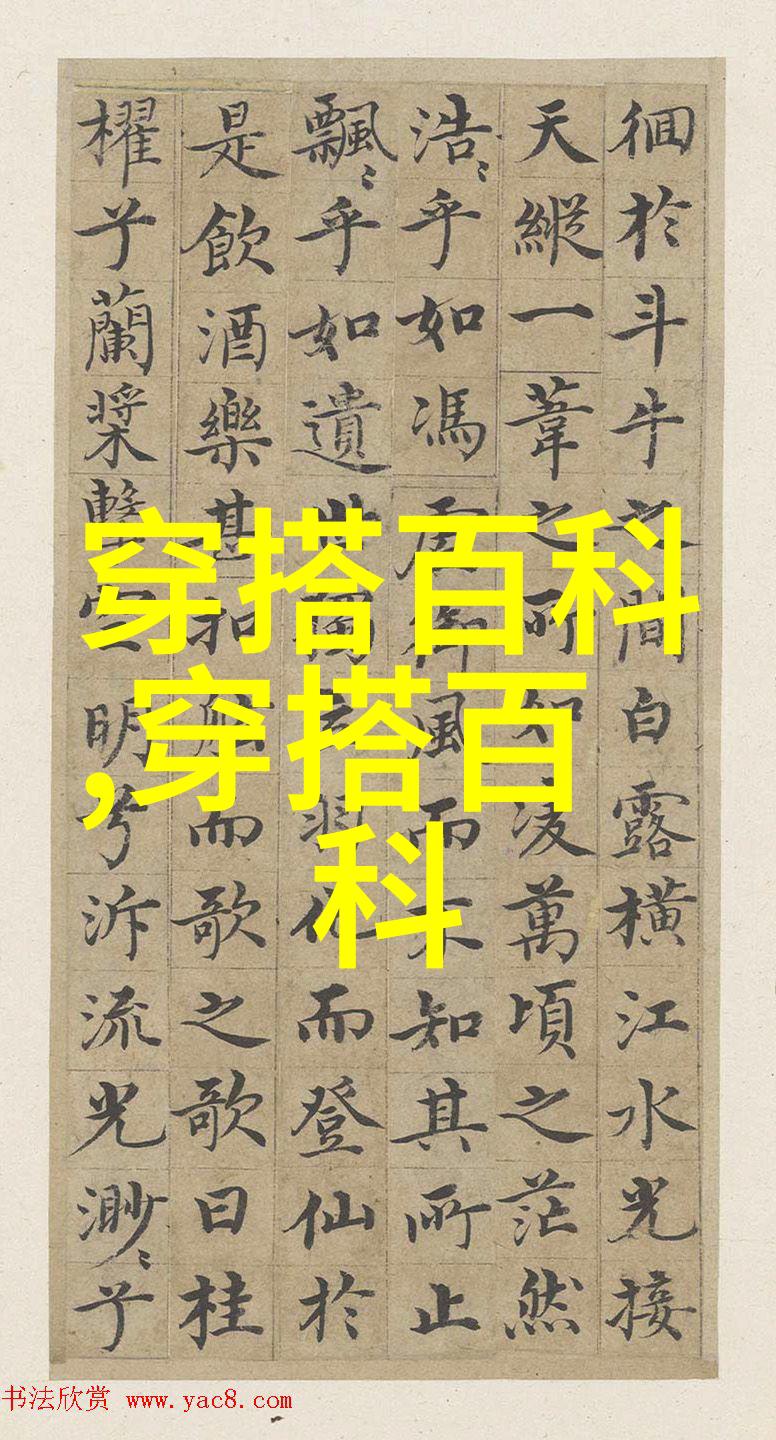 徊於斗牛之間白露橫江水光接
天縱一葦之所如凌萬頃之茫然
浩〻乎如馮虛御風而不知其所止
飄〻乎如遺世獨立羽化而登仙於
是飲酒樂甚扣舷而歌之歌曰桂
櫂兮蘭槳擊空明兮泝流光渺〻兮
穿搭百科
,穿搭百
科
书法欣赏 www.yac8.com